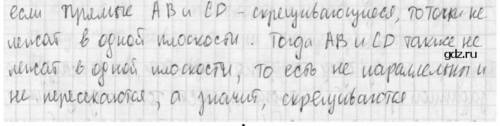 если прямые АВ и CD - скрещивающиеся, то точки не
лежат в одной плоскости. Тогда АВ и CD также не
gdz.ru
лежат в одной плоскости, то есть не параллельны и
не пересекаются, а значит, скрещиваются